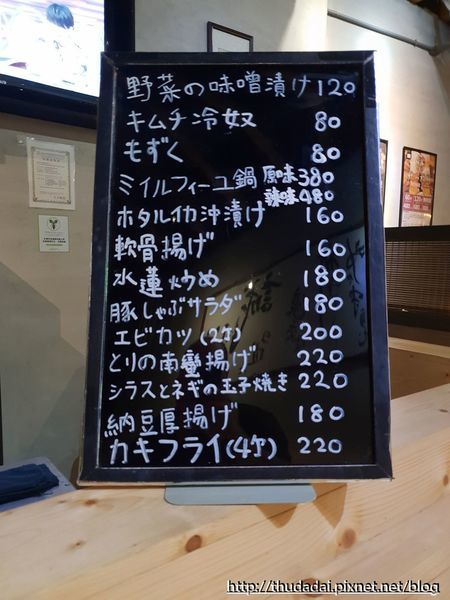 野菜の味噌漬け 120
キムチ冷奴 80
もずく 80
ミイルフィーユ鍋 原味 380
辣味 480
ホタルイカ沖漬け 160
軟骨揚げ 160
水蓮炒め 180
豚しゃぶサラダ 180
エビカツ(2ケ) 200
とりの南蠻揚げ 220
シラスとネギの玉子焼き 220
納豆厚揚げ 180
カキフライ(4ケ) 220
http://thudadai.pixnet.net/blog